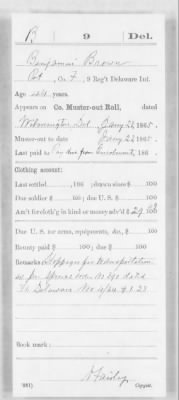 B 9 Del.
Benjamin Brown
Pvt, Co. F, 9 Reg't Delaware Inf.
Age 24 years.
Appears on Co. Muster-out Roll, dated
Wilmington Del Jany 23, 1865.
Muster-out to date Jany 23, 1865.
Last paid to Pay due from Enrolment, 186 .
Clothing account:
Last settled , 186 ; drawn since $ 100
Due soldier $ 100; due U. S. $ 100
Am't for cloth'g in kind or money adv'd $ 100
Due U. S. for arms, equipments, &c., $ 100
Bounty paid $ 100; due $ 100
Remarks: Stoppage for transportation
Delaware
Book mark:
(361) Copyist.